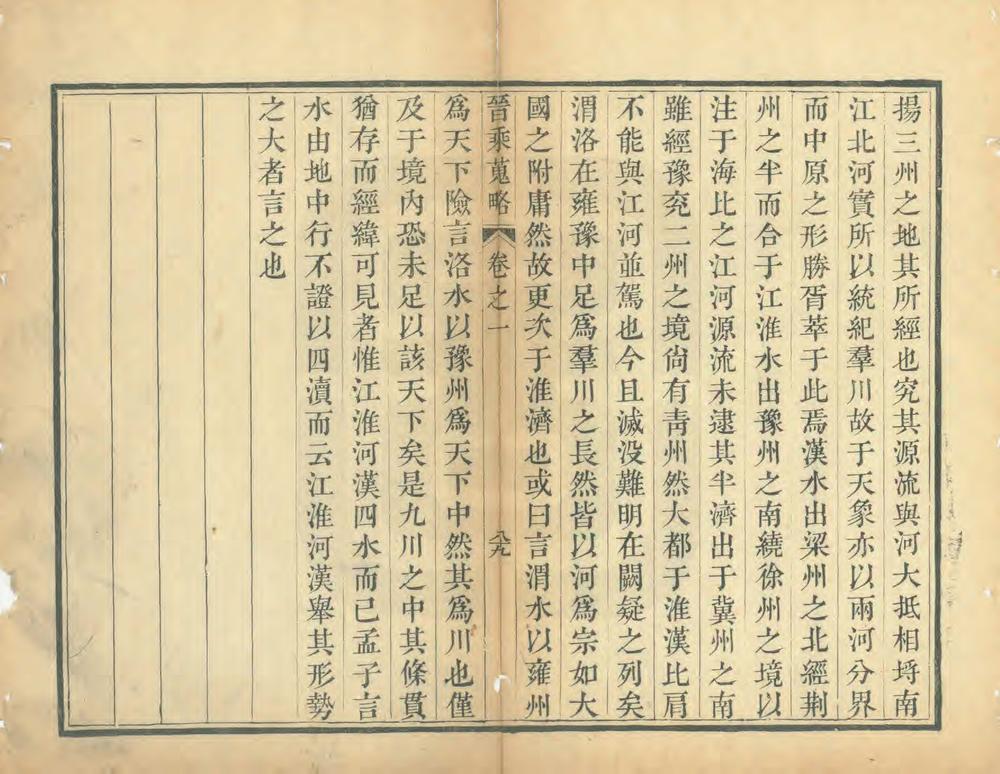 揚三州之地其所經也究其源流與河大抵相埒南
江北河實所以統紀羣川故于天象亦以兩河分界
而中原之形勝胥萃于此焉漢水出梁州之北經荆
州之半而合于江淮水出豫州之南繞徐州之境以
注于海比之江河源流未逮其半濟出于冀州之南
雖經豫兖二州之境尙有靑州然大都于淮漢比肩
不能與江河並駕也今且滅没難明在闕疑之列矣
渭洛在雍豫中足爲羣川之長然皆以河爲宗如大
國之附庸然故更次于淮濟也或曰言渭水以雍州
晉乘蒐略 卷之一 八九
爲天下險言洛水以豫州爲天下中然其爲川也僅
及于境內恐未足以該天下矣是九川之中其條貫
猶存而經緯可見者惟江淮河漢四水而已孟子言
水由地中行不證以四瀆而云江淮河漢舉其形勢
之大者言之也